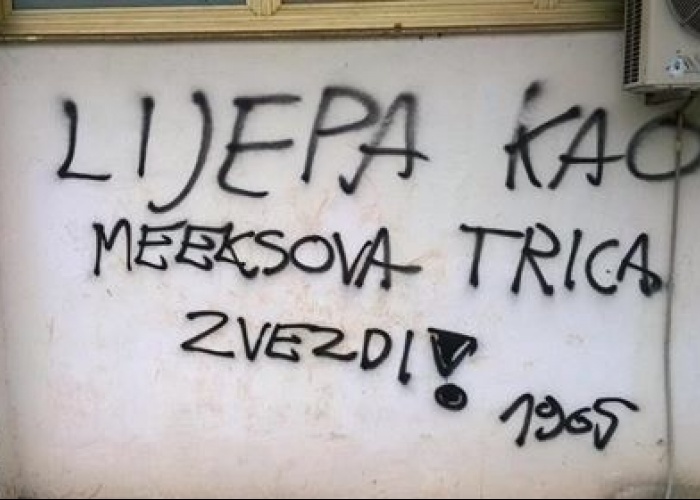 LIJEPA KAO
MEEKSOVA TRICA
ZVEZDI!
1965